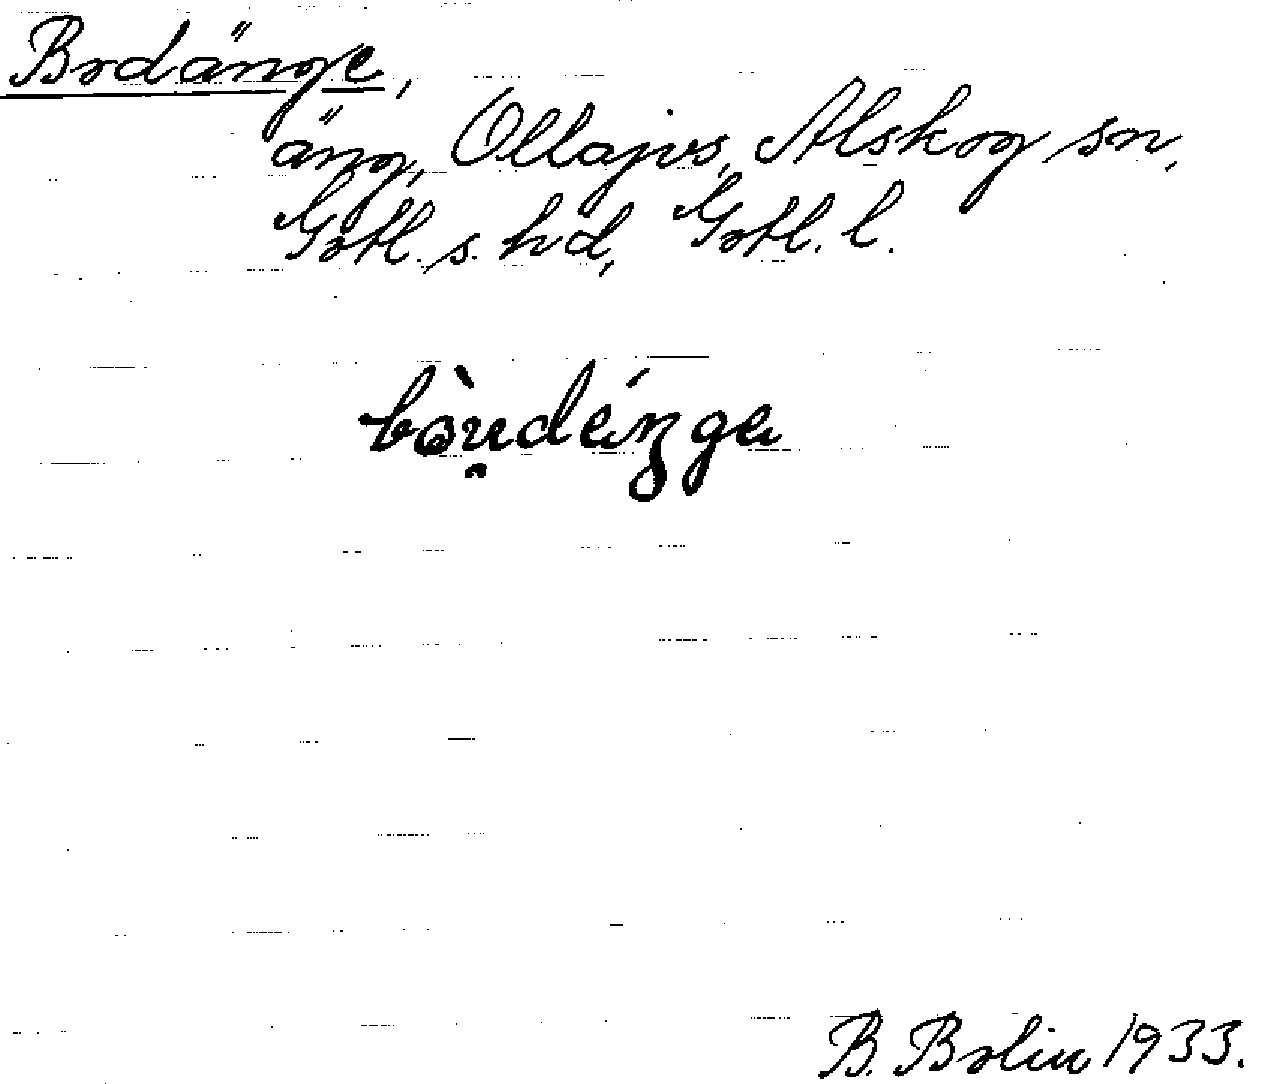 Bodänge,
äng, Ollajvs, Alskog sn,
Gotl. s. hd, Gotl. l.
B. Bolin 1933.